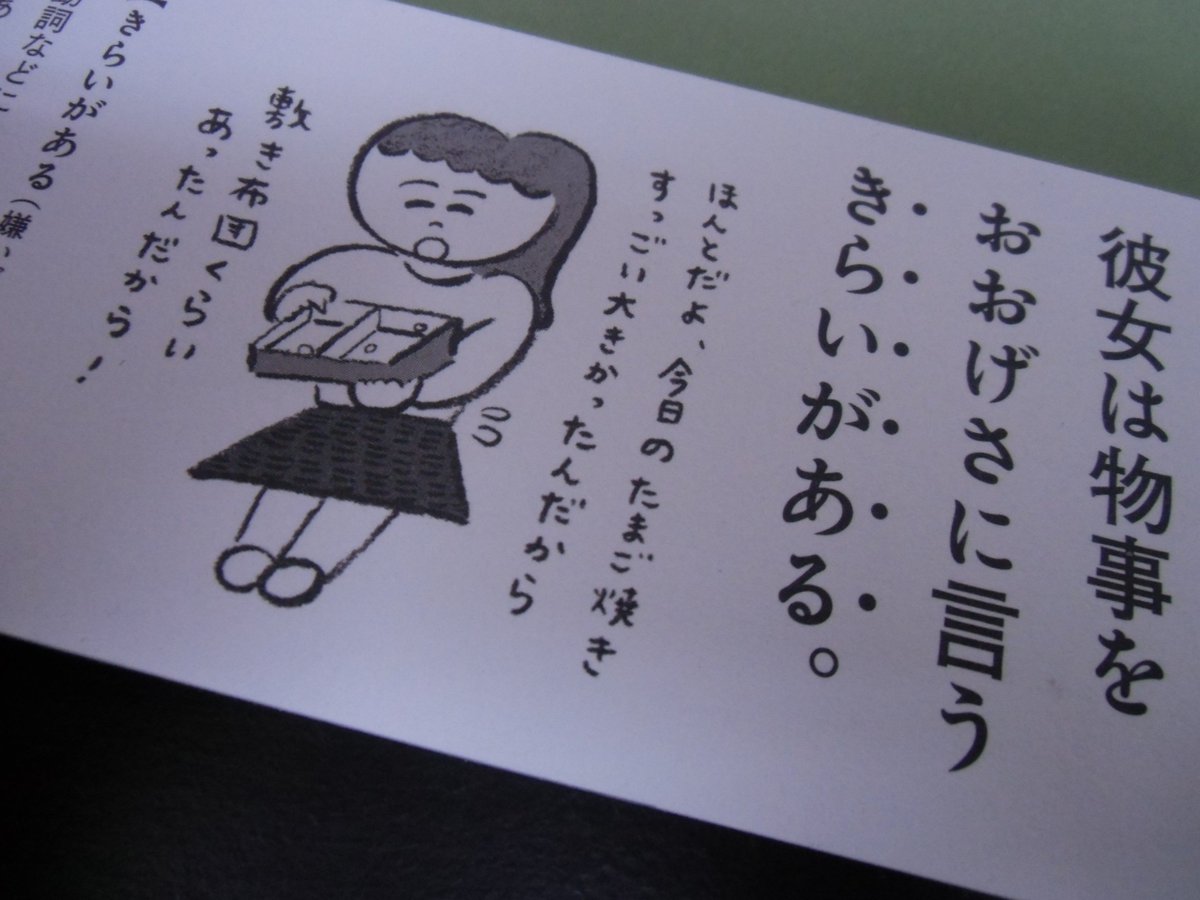 彼女は物事を
おおげさに言う
きらいがある。
ほんとだよ、今日のたまご焼き
すっごい大きかったんだから
敷き布団くらい
あったんだから!
きらいがある(嫌い
動詞などに